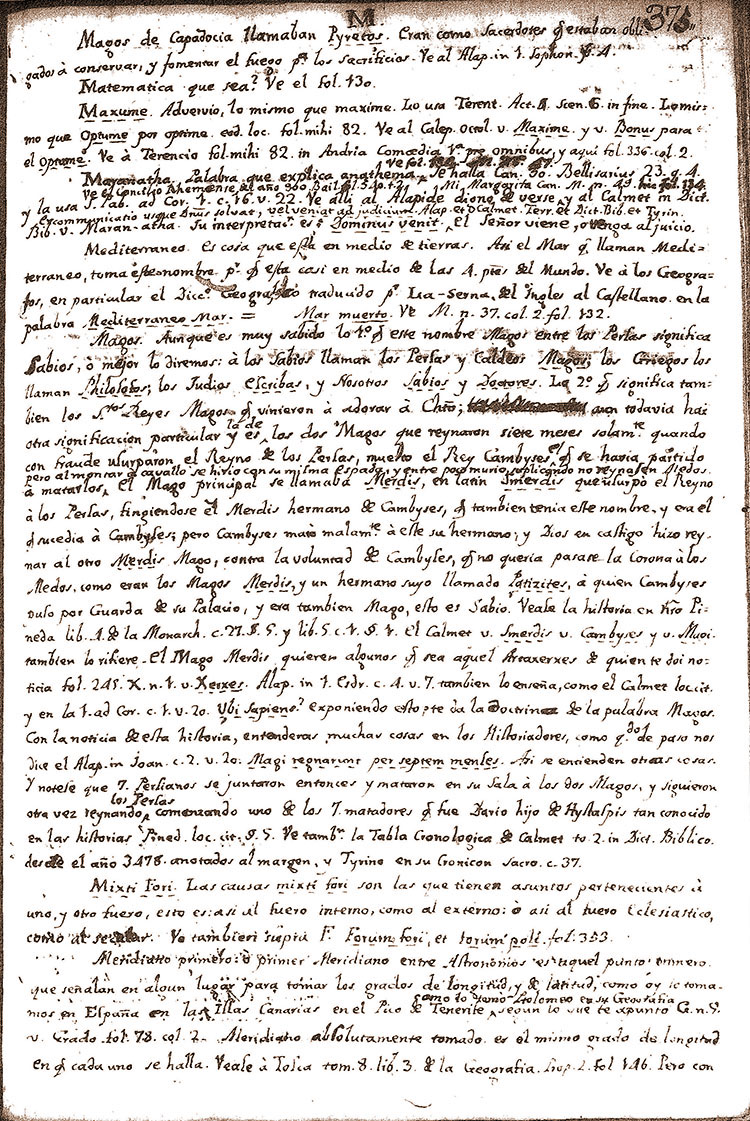 M.
375
Magos de Capadocia llamaban Pyretos. Eran como Sacerdotes q̃ estaban obli-
gados à conservar, y fomentar el fuego pª. los sacrificios. Ve al Alap. in 1. Sophon. v. 4.
Matematica que sea? Ve el fol. 130.
Maxume. Advervio, lo mismo que maxime. Lo usa Terent. Act. 4. Scen. 6. in fine. Lo mis-
mo que Optume por optime. eod. loc. fol. mihi 82. Ve al Calep. Octol. v. Maxime. y v. Bonus para
el Optume. Ve à Terencio fol. mihi 82. in Andria Comœdia Vª. pre omnibus, y aqui fol. 336. col. 2.
Maranatha. Palabra que explica anathema, se halla Can. 30. Bellisarius 23. q. 4.
Ve el Concilio Rhemense al año 900 Bail. fol. 540. t. 2. Mi Margarita Can. M. n. 49.
y la usa S. Pab. ad Cor. 1. c. 16. v. 22. Ve alli al Alapide y al Calmet in Dict.
Excommunicatio usque Dnûs solvat, vel veniat ad judicium. Alap. et Calmet. Terr. et Dict. Bib. et Tyrin.
Bib. v. Maran-atha. Su interpretaⁿ. es: Dominus venit. El Señor viene, ò venga al juicio.
Mediterraneo. Es cosa que està en medio de tierras. Asi el Mar q̃ llaman Medi-
terraneo, toma este nombre pʳ. q̃ està casi en medio de las 4. ptes del Mundo. Ve à los Geogra-
fos, en particular el Dicc. Geografico traducido pʳ. La-Serna, del Ingles al Castellano. en la
palabra Mediterraneo Mar. = Mar muerto. Ve M. n. 37. col. 2. fol. 132.
Magos. Aunque es muy sabido lo 1º. q̃ este nombre Magos entre los Persas significa
Sabios, ò mejor lo diremos: à los Sabios llaman los Persas y Caldeos Magos; los Griegos los
llaman Philosofos; los Judios Escribas, y Nosotros Sabios y Doctores. Lo 2º. q̃ significa tam-
bien los Sᵗᵒˢ. Reyes Magos q̃ vinieron à adorar à Chto; aun todavia hai
otra significacion particular y es la de los dos Magos que reynaron siete meses solamᵗᵉ. quando
con fraude usurparon el Reyno de los Persas, muerto el Rey Cambyses, q̃ se havia partido
pero al montar à cavallo se hirio con su misma espada, y entre poco murio, suplicando no reynasen Medos.
à matarlos. El Mago principal se llamaba Merdis, en latin Smerdis que usurpò el Reyno
à los Persas, fingiendose el Merdis hermano de Cambyses, q̃ tambien tenia este nombre, y era el
q̃ sucedia à Cambyses; pero Cambyses matò malamᵗᵉ. à este su hermano; y Dios en castigo hizo rey-
nar al otro Merdis Mago, contra la voluntad de Cambyses, q̃ no queria pasase la Corona à los
Medos, como eran los Magos Merdis, y un hermano suyo llamado Patizites, à quien Cambyses
puso por Guarda de su Palacio, y era tambien Mago, esto es Sabio. Vease la historia en ñro Pi-
neda lib. 4. de la Monarch. c. 27. §. 5. y lib. 5. c. 1. §. 1. El Calmet v. Smerdis v. Cambyses y v. Magi.
tambien lo rifiere. El Mago Merdis quieren algunos q̃ sea aquel Artaxerxes de quien te doi no-
ticia fol. 245. X. n. 1. v. Xerxes. Alap. in 1. Esdr. c. 4. v. 7. tambien lo enseña, como el Calmet loc. cit.
y en la 1. ad Cor. c. 1. v. 20. Ubi Sapiens? exponiendo esto pte da la doctrina de la palabra Magos.
Con la noticia de esta historia, entenderas muchas cosas en los Historiadores, como q.ᵈᵒ de paso nos
dice el Alap. in Joan. c. 2. v. 20: Magi regnarunt per septem menses. Asi se encienden otras cosas.
Y notese que 7. Persianos se juntaron entonces y mataron en su Sala à los dos Magos, y siguieron
otra vez reynando los Persas, comenzando uno de los 7. matadores q̃ fue Dario hijo de Hystaspis tan conocido
en las historias. Pined. loc. cit. §. 5. Ve tambⁿ. la Tabla Cronologica de Calmet to. 2. in Dict. Biblico.
desde el año 3478. anotados al margen, y Tyrino en su Cronicon Sacro. c. 37.
Mixti Fori. Las causas mixti fori son las que tienen asuntos pertenecientes à
uno, y otro fuero, esto es: asi al fuero interno, como al externo: ò asi al fuero Eclesiastico,
como al secular. Ve tambien supra F. Forum fori, et forum poli. fol. 353.
Meridiano primero: ò primer Meridiano entre Astronomos es aquel punto primero
que señalan en algun lugar para tomar los grados de longitud, y de latitud, como oy le toma-
mos en España en las Islas Canarias en el Pico de Tenerife, como lo usò Ptolomeo en su Geografia segun lo que te apunto G. n. 5.
v. Grado. fol. 78. col. 2. Meridiano absolutamente tomado es el mismo grado de longitud
en q̃ cada uno se halla. Veale à Tosca tom. 8. lib. 3. de la Geografia. Prop. 2. fol. 146. Pero con